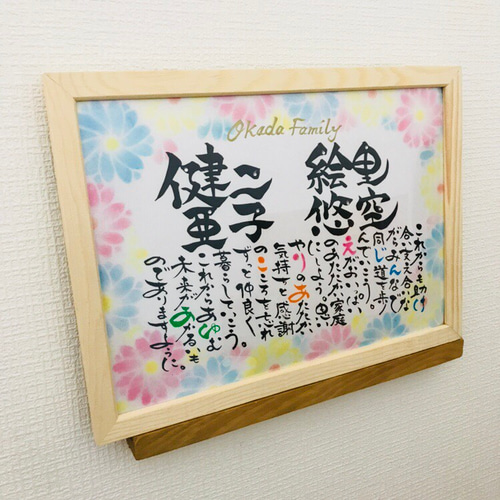 Okada Family
絵里
悠空
健二
亜子
これからも助け
合い支え合いな
がらみんなで
同じ道を歩
んでいこう
えがおいっぱい
のあたたかい家庭
にしよう。思い
やりのあたたかい
気持ちと感謝
のこころを忘れ
ずっと仲良く
暮らしていこう。
これからあゆむ
未来があかるいも
のでありますように。